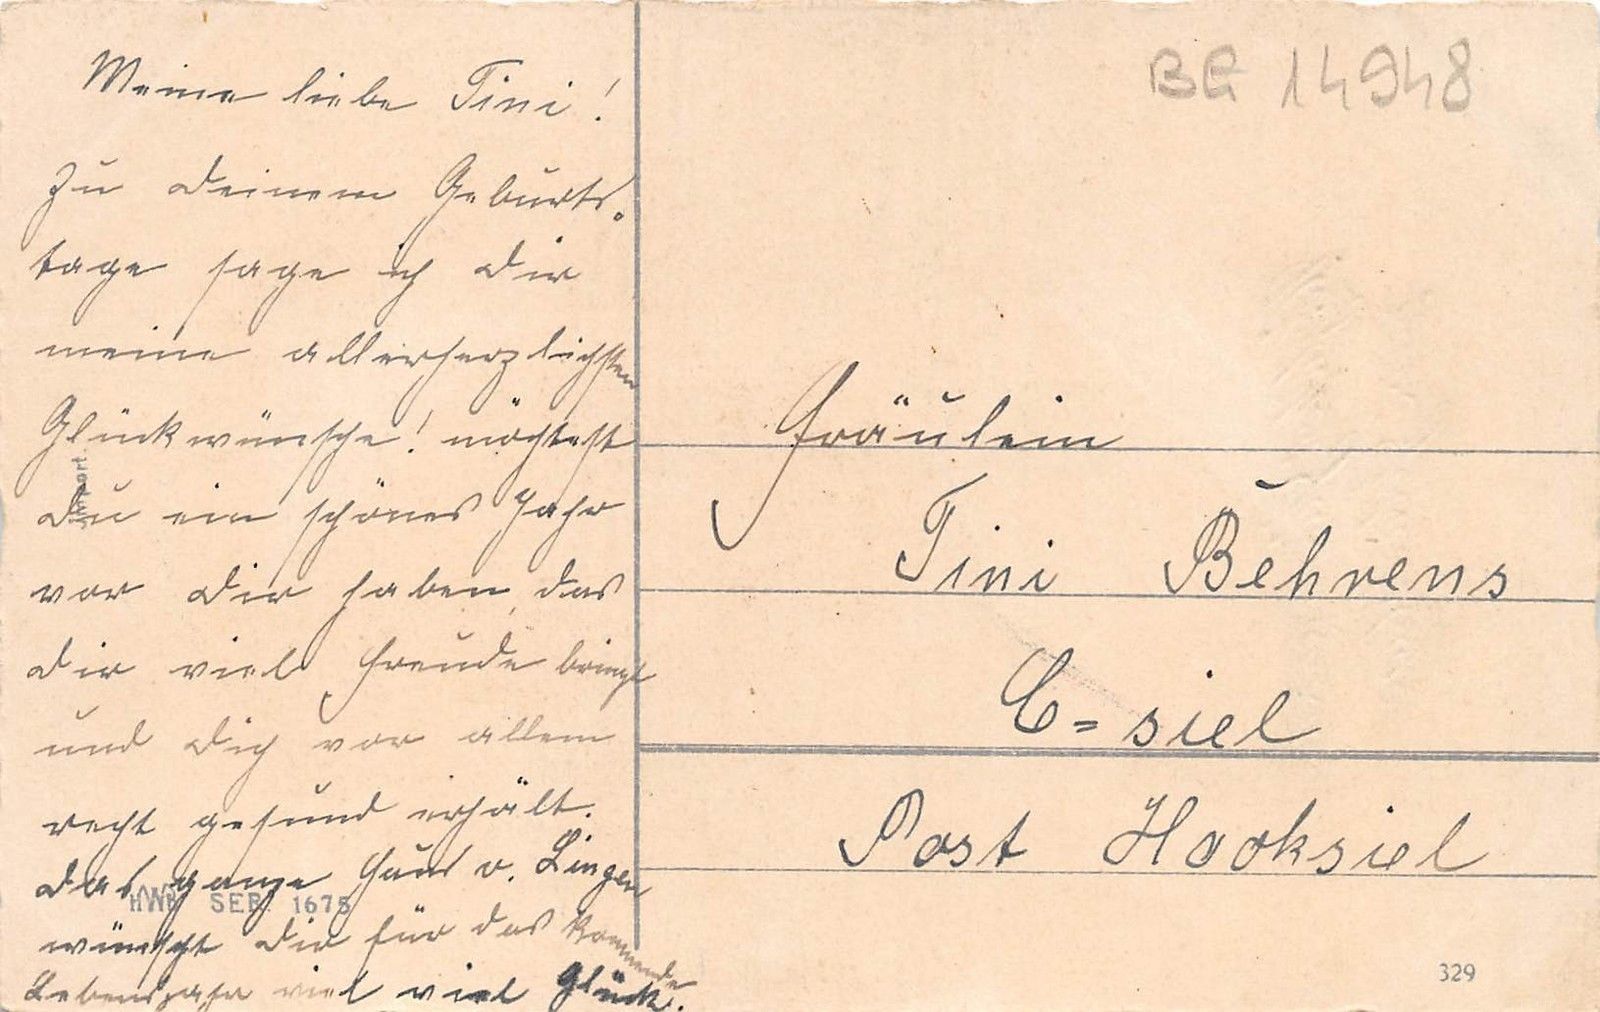 Meine liebe Tini!
Zu Deinem Geburts-
tage sage ich Dir
meine allerherzlichsten
Glückwünsche! möchtest
Du ein schönes Jahr
vor Dir haben, das
Dir viel Freude bringt
und Dich vor allem
recht gesund erhält.
Das ganze Haus v. Lingen
wünscht Dir für das kommende
Lebensjahr viel viel Glück.
Import.
HWB SER. 1675
14948
Fräulein
Tini Behrens
C=siel
Post Hooksiel
329